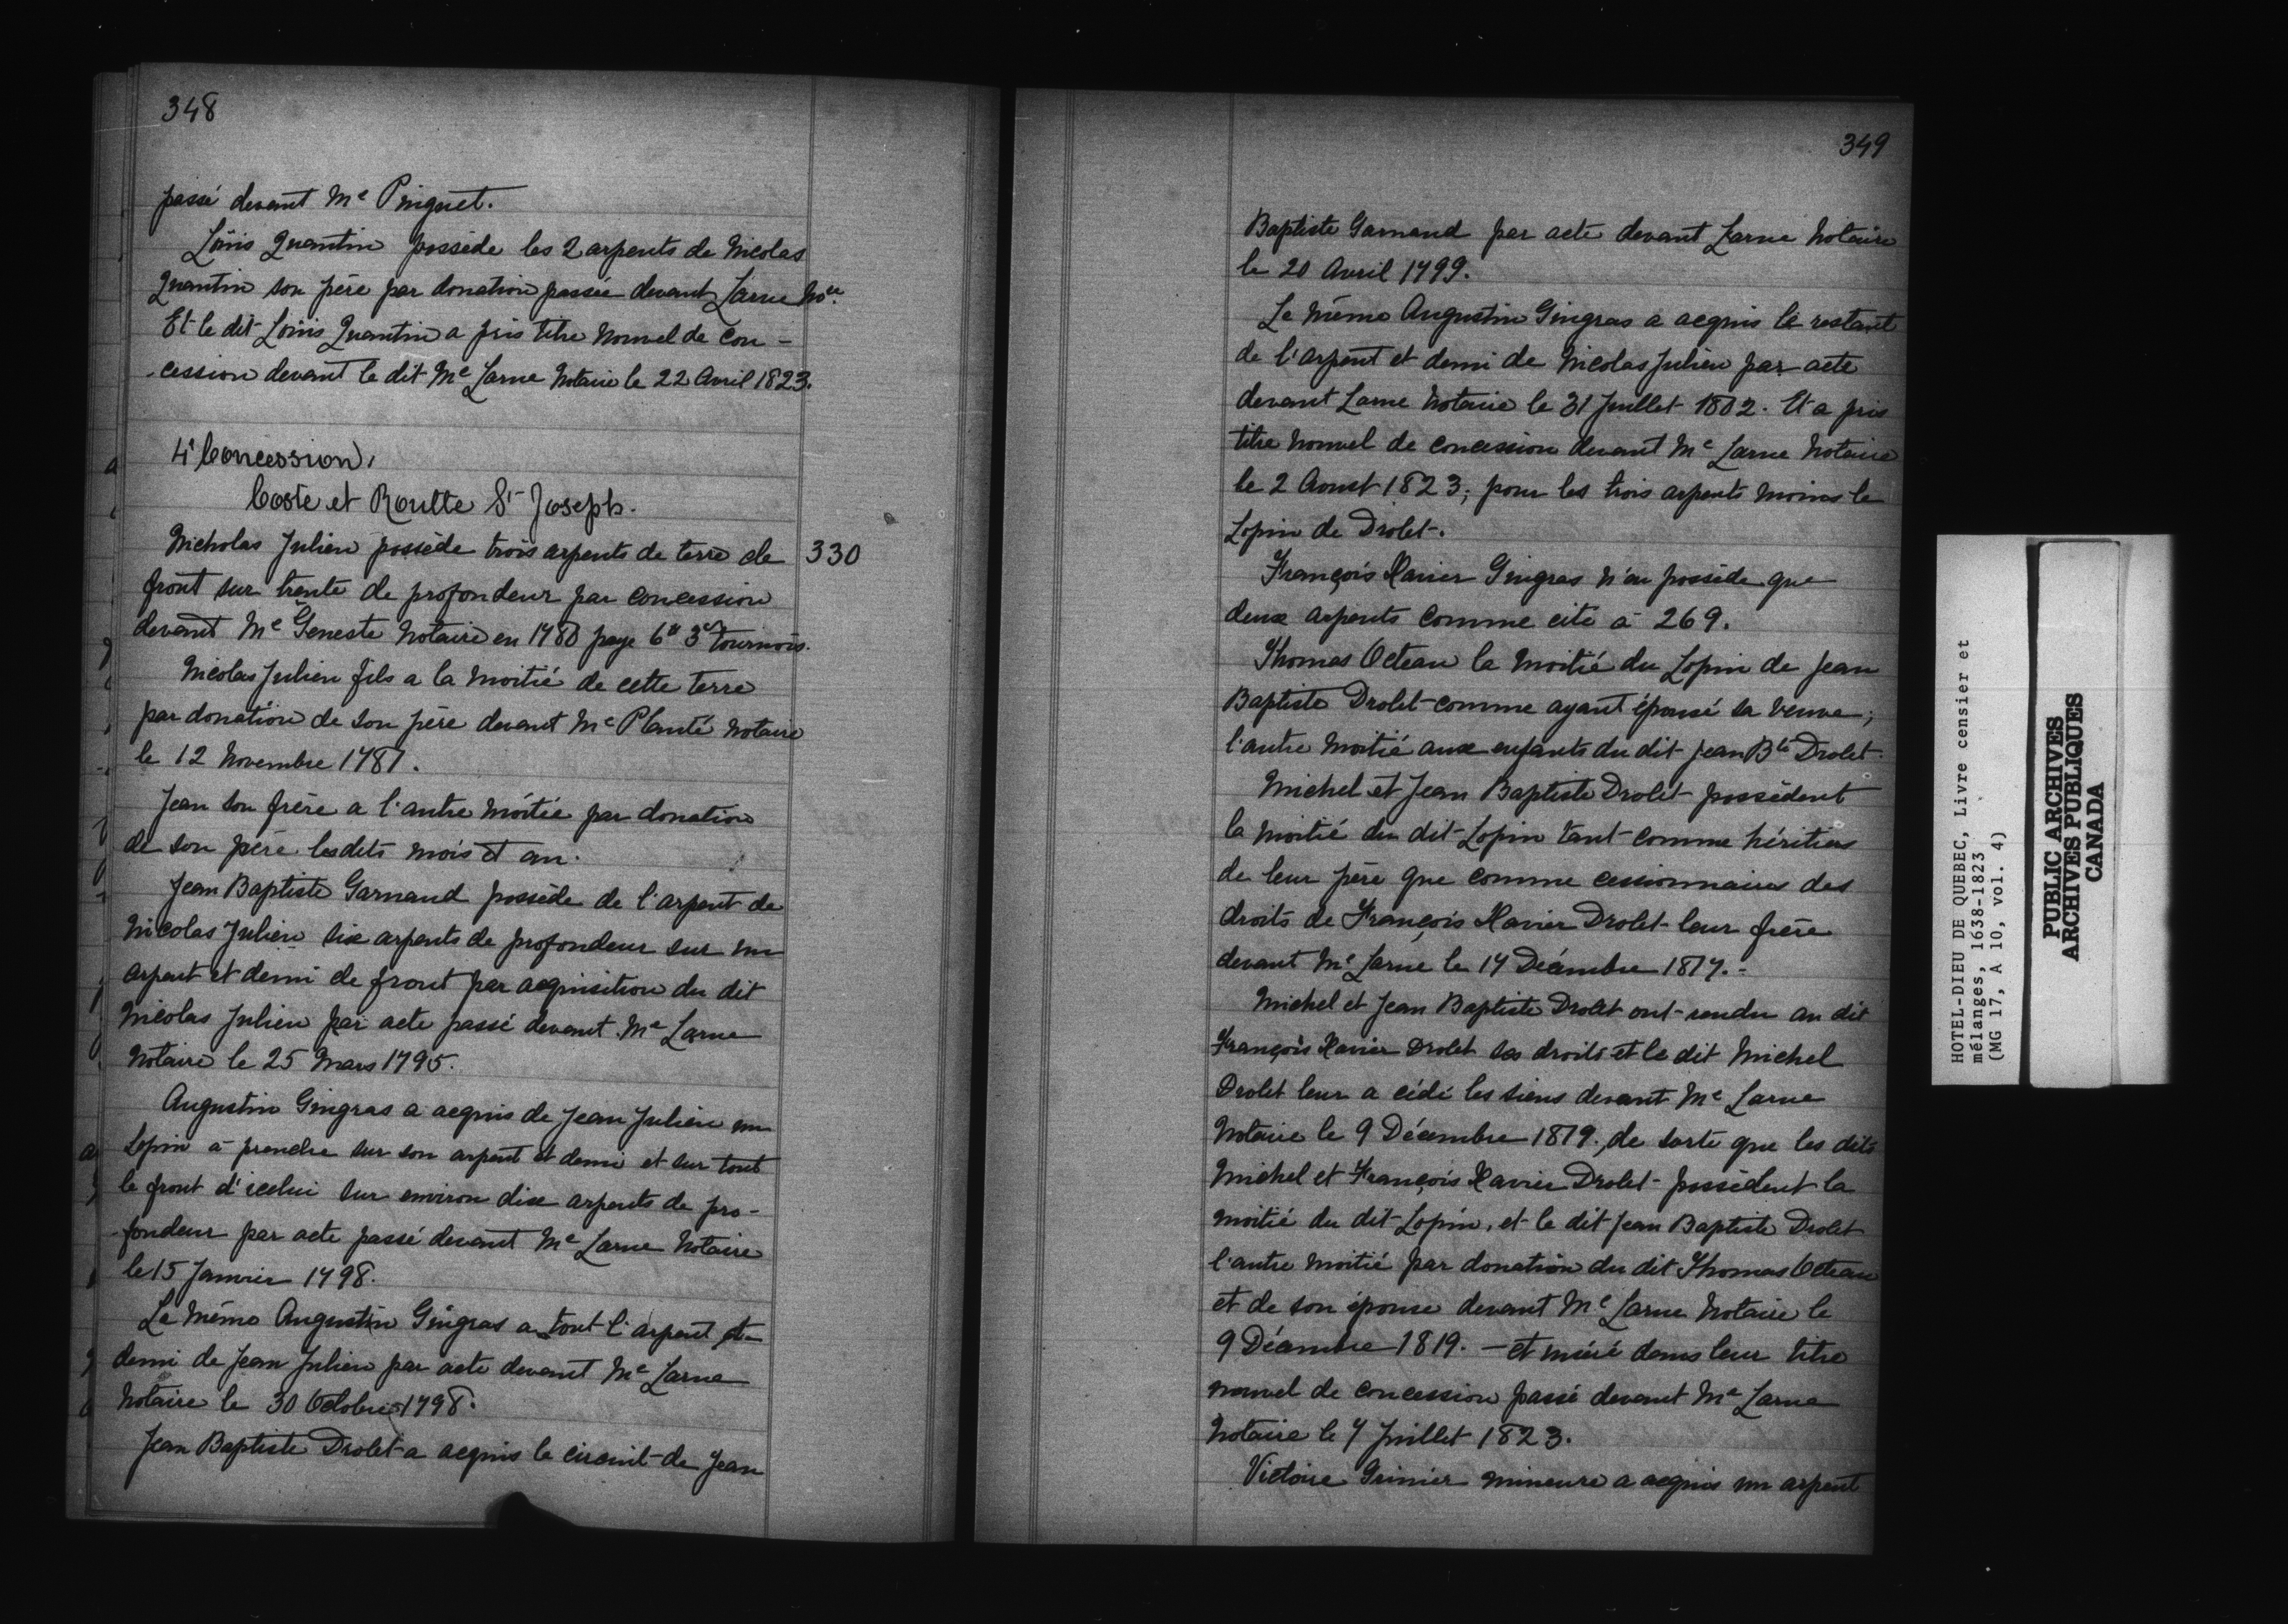 348
passé devant Me Pinguet.
Loüis Quantin possède les 2 arpents de Nicolas
Quantin son père par donation passée devant Larue Nore.
Et le dit Loüis Quantin a pris titre nouvel de con-
cession devant le dit Me Larue Notaire le 22 Avril 1823.
4e Concession,
Coste et Roulte St Joseph.
Nicholas Julien possède trois arpents de terre de 330
front sur trente de profondeur par concession
devant Me Geneste Notaire en 1780 paye 6# 3s tournois.
Nicolas Julien fils a la moitié de cette terre
par donation de son père devant Me Planté notaire
le 12 Novembre 1781.
Jean son frère a l'autre moitié par donation
de son père lesdits mois et an.
Jean Baptiste Garnaud possède de l'arpent de
Nicolas Julien six arpents de profondeur sur un
arpent et demi de front par acquisition du dit
Nicolas Julien par acte passé devant Me Larue
Notaire le 25 Mars 1795.
Augustin Gingras a acquis de Jean Julien un
Lopin à prendre sur son arpent et demi et sur tout
le front d'icelui sur environ dix arpents de pro-
fondeur par acte passé devant Me Larue Notaire
le 15 Janvier 1798.
Le même Augustin Gingras a tout l'arpent et
demi de Jean Julien par acte devant Me Larue
Notaire le 30 Octobre 1798.
Jean Baptiste Drolet a acquis le circuit de Jean
349
Baptiste Garnaud par acte devant Larue Notaire
le 20 Avril 1799.
Le même Augustin Gingras a acquis le restant
de l'arpent et demi de Nicolas Julien par acte
devant Larue Notaire le 31 Juillet 1802. Et a pris
titre nouvel de concession devant Me Larue Notaire
le 2 Aoust 1823, pour les trois arpents moins le
Lopin de Drolet.
François Xavier Gingras n'en possède que
deux arpents comme cité à 269.
Thomas Octeau la moitié du Lopin de Jean
Baptiste Drolet comme ayant épousé sa veuve;
l'autre moitié aux enfants du dit Jean Bte Drolet.
Michel et Jean Baptiste Drolet possèdent
la moitié du dit Lopin tant comme héritiers
de leur père que comme cessionnaires des
droits de François Xavier Drolet leur frère
devant Me Larue le 17 Décembre 1817.-
Michel et Jean Baptiste Drolet ont rendu au dit
François Xavier Drolet ses droits et le dit Michel
Drolet leur a cédé les siens devant Me Larue
Notaire le 9 Décembre 1819, de sorte que les dits
Michel et François Xavier Drolet possèdent la
moitié du dit Lopin, et le dit Jean Baptiste Drolet
l'autre moitié par donation du dit Thomas Octeau
et de son épouse devant Me Larue Notaire le
9 Décembre 1819. - et inséré dans leur titre
nouvel de concession passé devant Me Larue
Notaire le 7 Juillet 1823.
Victoire Grinier mineure a acquis un arpent
HOTEL-DIEU DE QUEBEC, Livre censier et
mélanges, 1638-1823
(MG 17, A 10, vol. 4)
PUBLIC ARCHIVES
ARCHIVES PUBLIQUES
CANADA